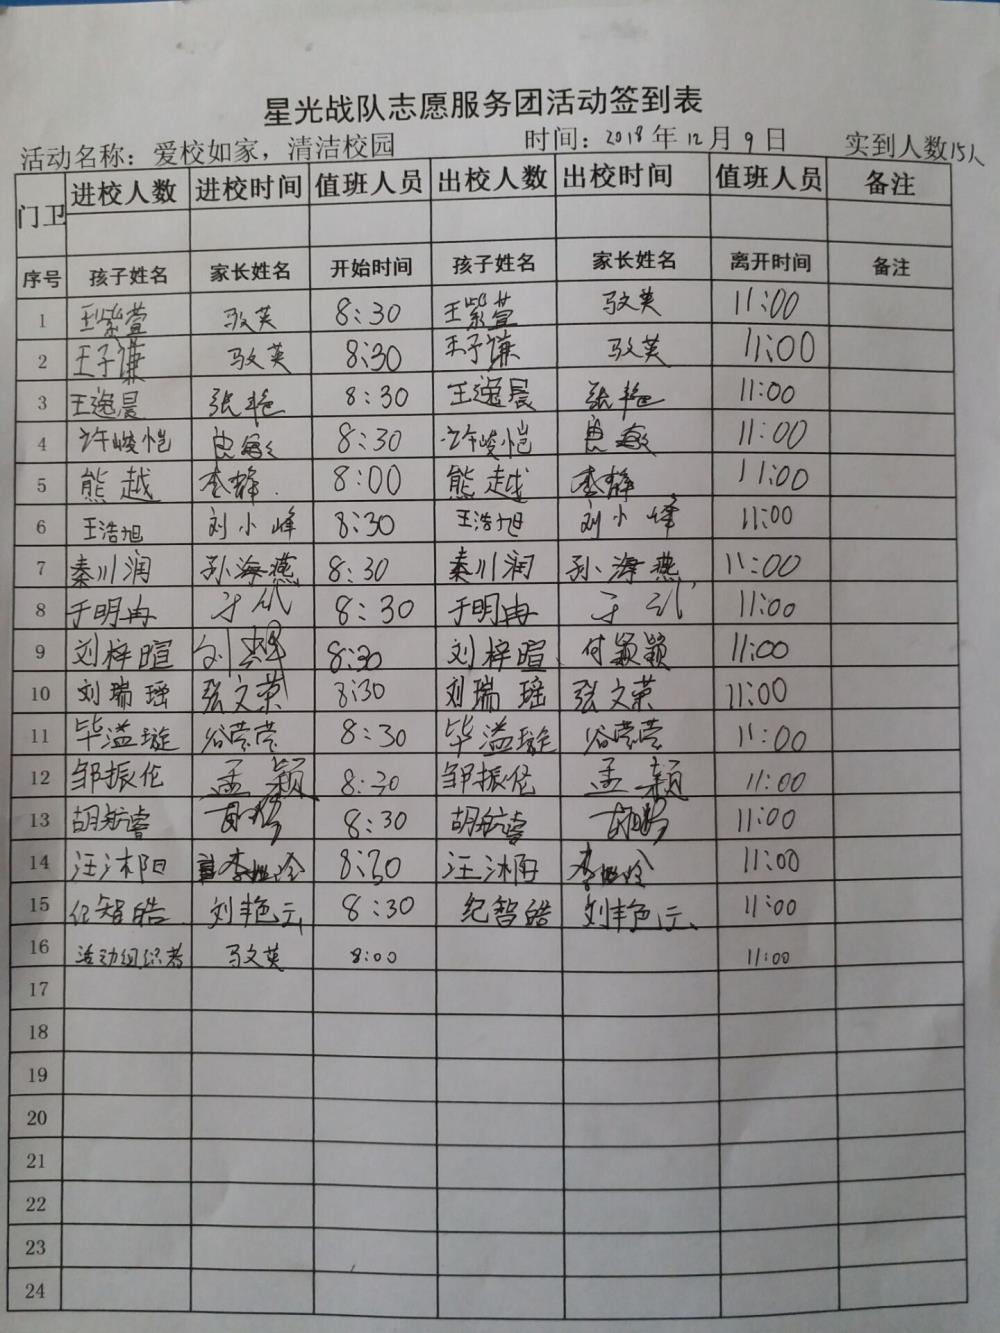 星光战队志愿服务团活动签到表
活动名称：爱校如家，清洁校园 时间：2018年12月9日 实到人数15人
门卫 进校人数 进校时间 值班人员 出校人数 出校时间 值班人员 备注
序号 孩子姓名 家长姓名 开始时间 孩子姓名 家长姓名 离开时间 备注
1 王紫萱 马文英 8:30 王紫萱 马文英 11:00
2 王子谦 马文英 8:30 王子谦 马文英 11:00
3 王逸晨 张艳 8:30 王逸晨 张艳 11:00
4 许峻恺 8:30 许峻恺 11:00
5 熊越 李静 8:00 熊越 李静 11:00
6 王浩旭 刘小峰 8:30 王浩旭 刘小峰 11:00
7 秦川润 孙海燕 8:30 秦川润 孙海燕 11:00
8 于明冉 8:30 于明冉 11:00
9 刘梓暄 8:30 刘梓暄 付颖颖 11:00
10 刘瑞瑶 张文荣 8:30 刘瑞瑶 张文荣 11:00
11 毕溢璇 谷莹莹 8:30 毕溢璇 谷莹莹 11:00
12 邹振伦 孟颖 8:30 邹振伦 孟颖 11:00
13 胡航睿 8:30 胡航睿 11:00
14 汪沐阳 8:30 汪沐阳 11:00
15 纪智皓 刘艳云 8:30 纪智皓 刘艳云 11:00
16 活动组织者 马文英 8:00 11:00
17
18
19
20
21
22
23
24